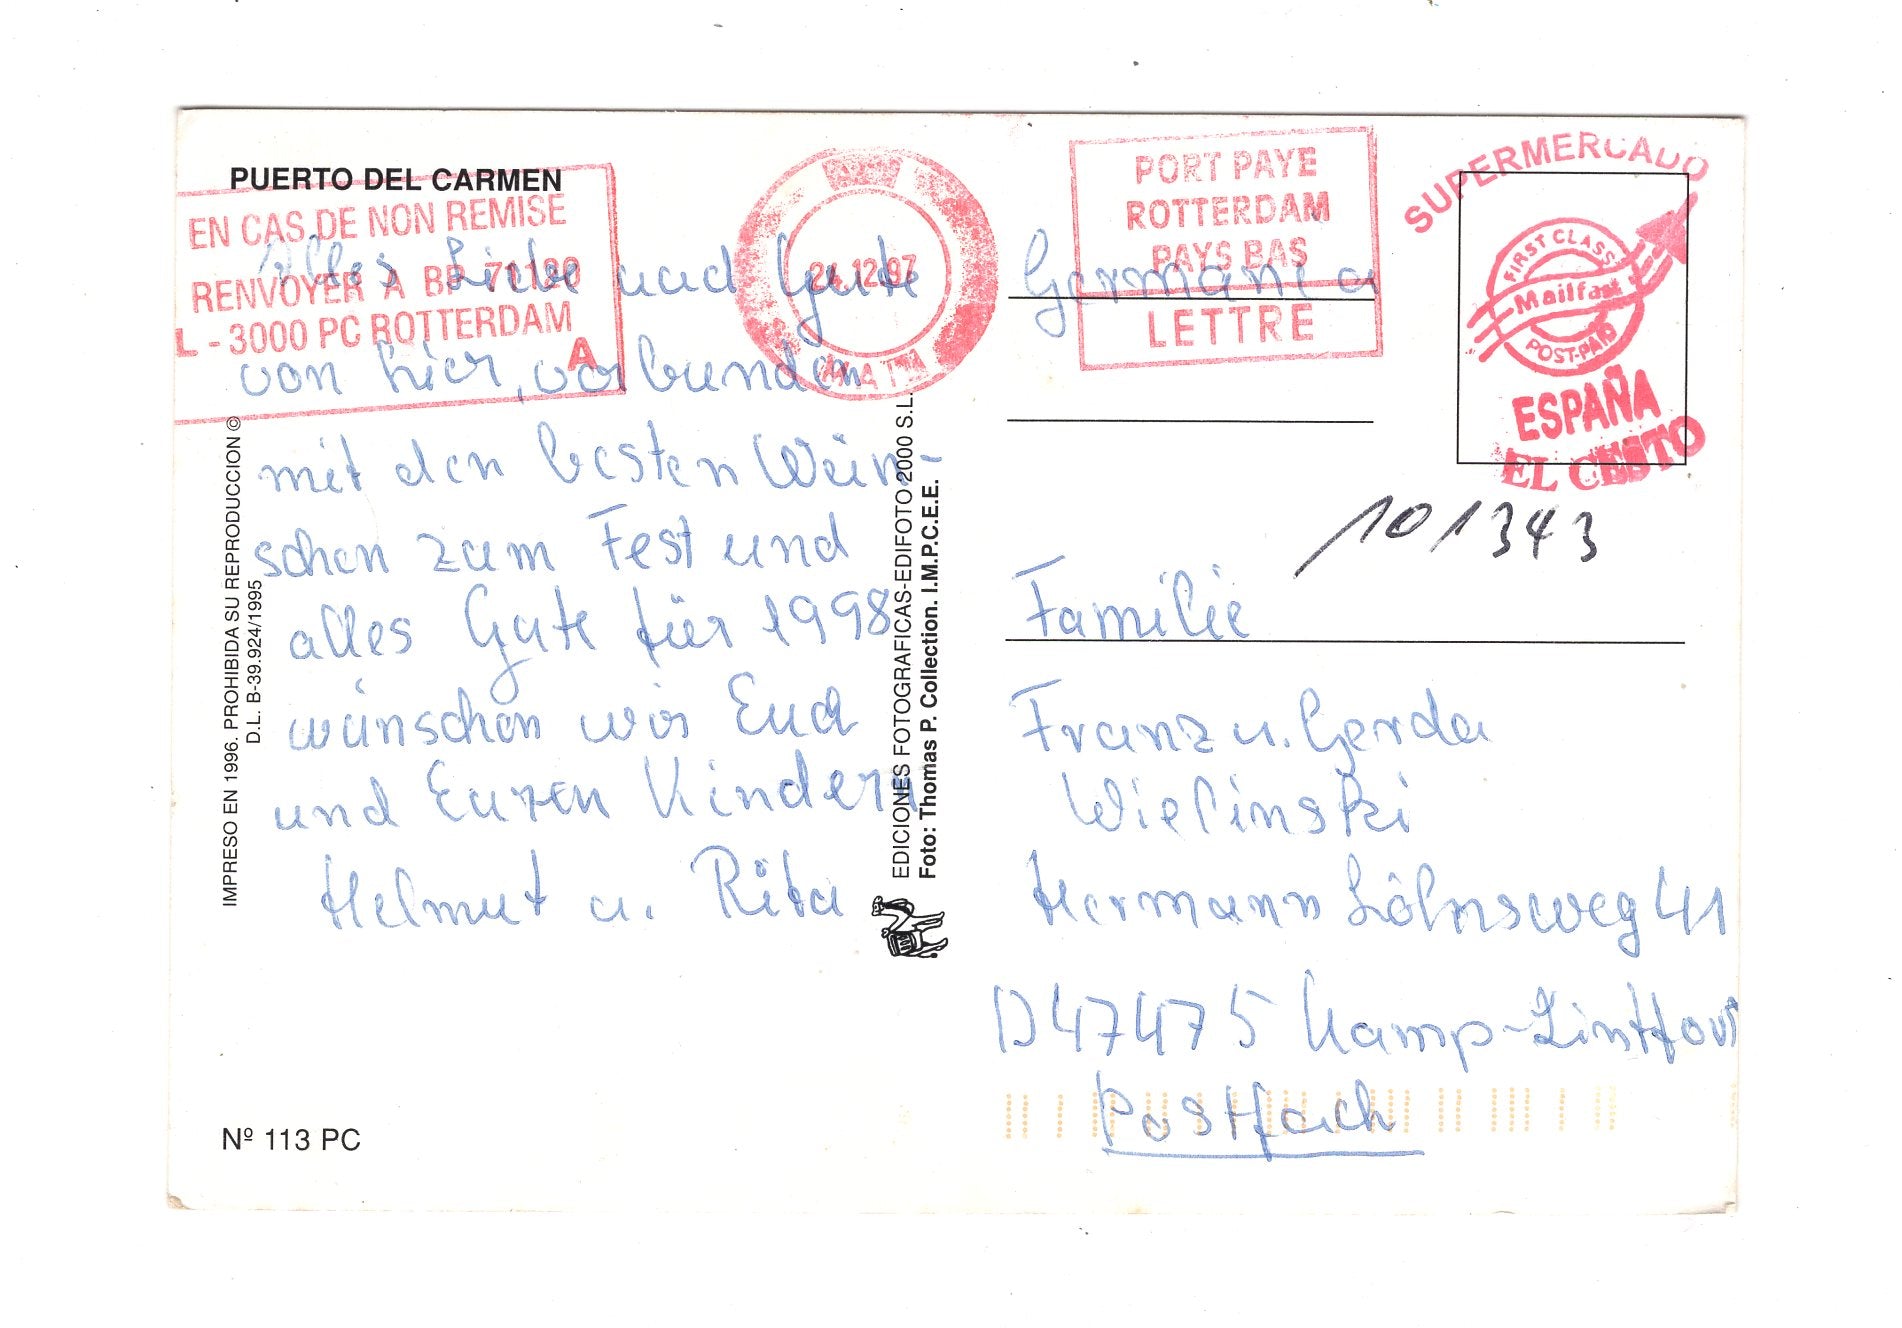 PUERTO DEL CARMEN
EN CAS DE NON REMISE
RENVOYER A BP 71180
L - 3000 PC ROTTERDAM
A
24.12.97
PORT PAYE
ROTTERDAM
PAYS BAS
LETTRE
SUPERMERCADO
FIRST CLASS
Mailfast
POST-PAID
ESPAÑA
EL CESTO
Alles Liebe und Gute
von hier, verbunden
mit den besten Wün-
schen zum Fest und
alles Gute für 1998
wünschen wir Euch
und Euren Kindern
Helmut u. Rita
Germania
101343
Familie
Franz u. Gerda
Wielinski
Hermann Löhnsweg 41
D 47475 Kamp-Lintfort
Postfach
IMPRESO EN 1996. PROHIBIDA SU REPRODUCCION ©
D.L. B-39.924/1995
EDICIONES FOTOGRAFICAS-EDIFOTO 2000 S.L.
Foto: Thomas P. Collection. I.M.P.C.E.E.
Nº 113 PC